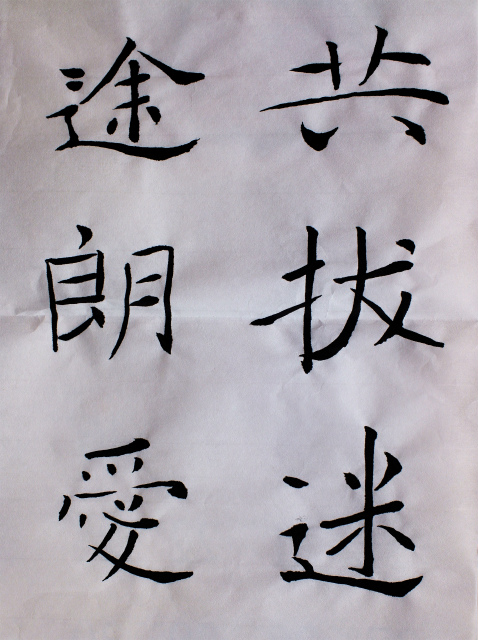 共拔迷
途朗愛